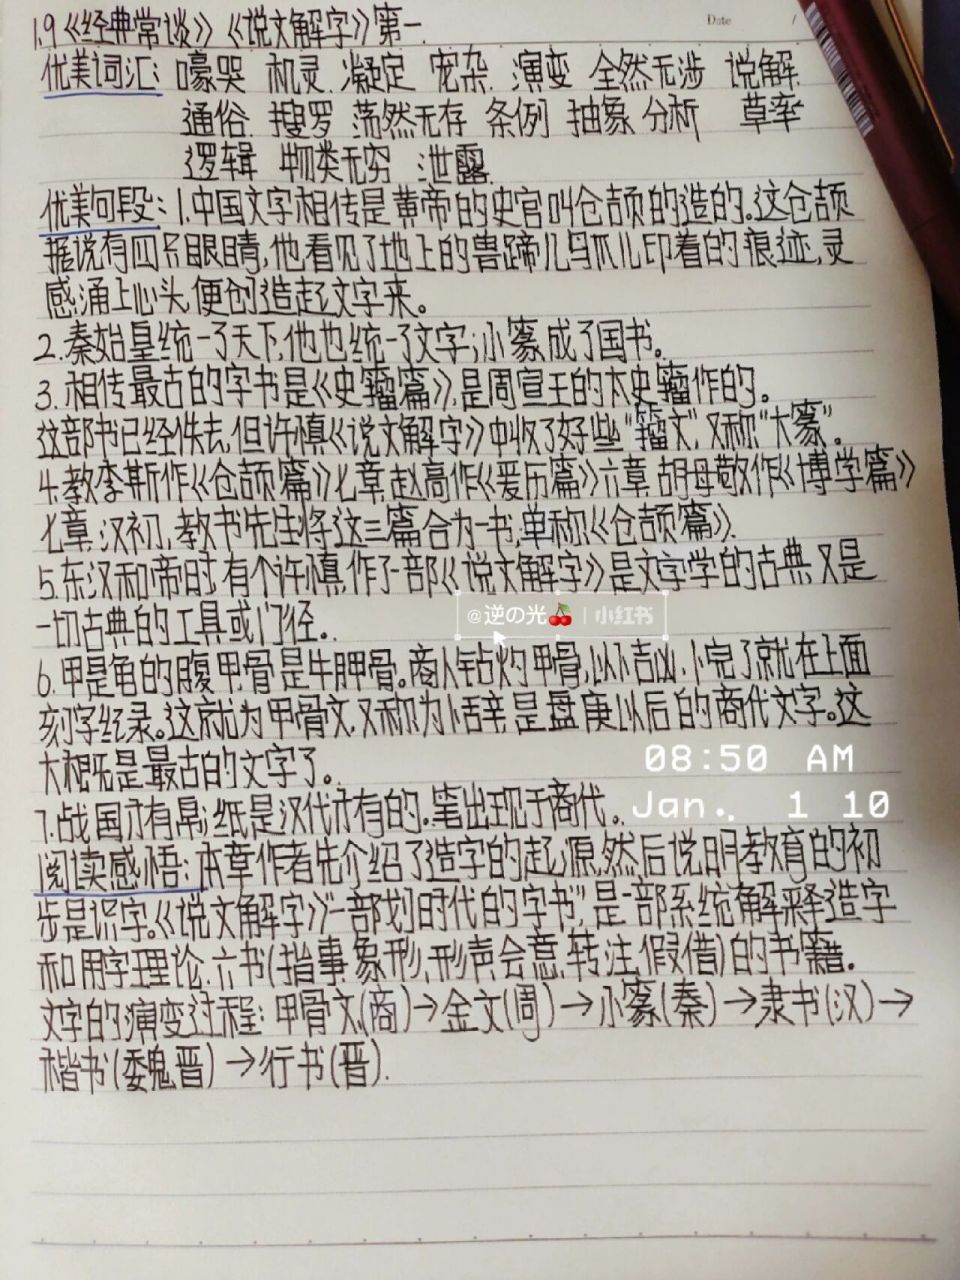 Date /
1.9《经典常谈》《说文解字》第一
优美词汇: 嚎哭 机灵 凝定 庞杂 演变 全然无涉 说解
通俗 搜罗 荡然无存 条例 抽象 分析 草率
逻辑 物类无穷 泄露
优美句段: 1.中国文字相传是黄帝的史官叫仓颉的造的。这仓颉
据说有四只眼睛,他看见了地上的兽蹄儿鸟爪儿印着的痕迹,灵
感涌上心头,便创造起文字来。
2.秦始皇统一了天下,他也统一了文字;小篆成了国书。
3.相传最古的字书是《史籀篇》,是周宣王的太史籀作的。
这部书已经佚去,但许慎《说文解字》中收了好些“籀文”,又称“大篆”。
4.教李斯作《仓颉篇》七章,赵高作《爰历篇》六章,胡母敬作《博学篇》
七章,汉初,教书先生将这三篇合为一书,单称《仓颉篇》.
5.东汉和帝时,有个许慎,作了一部《说文解字》是文字学的古典,又是
一切古典的工具或门径。
@逆の光🍒 | 小红书
6.甲是龟的腹甲,骨是牛胛骨。商人钻灼甲骨,以卜吉凶,卜完了就在上面
刻字纪录。这就为甲骨文,又称为卜辞,是盘庚以后的商代文字。这
大概是最古的文字了。
08:50 AM
7.战国才有帛;纸是汉代才有的。笔出现于商代。
Jan.. 1 10
阅读感悟: 本章作者先介绍了造字的起源,然后说明教育的初
步是识字。《说文解字》“一部划时代的字书”,是一部系统解释造字
和用字理论,六书(指事,象形,形声,会意,转注,假借)的书籍。
文字的演变过程: 甲骨文(商)→金文(周)→小篆(秦)→隶书(汉)→
楷书(魏晋)→行书(晋).